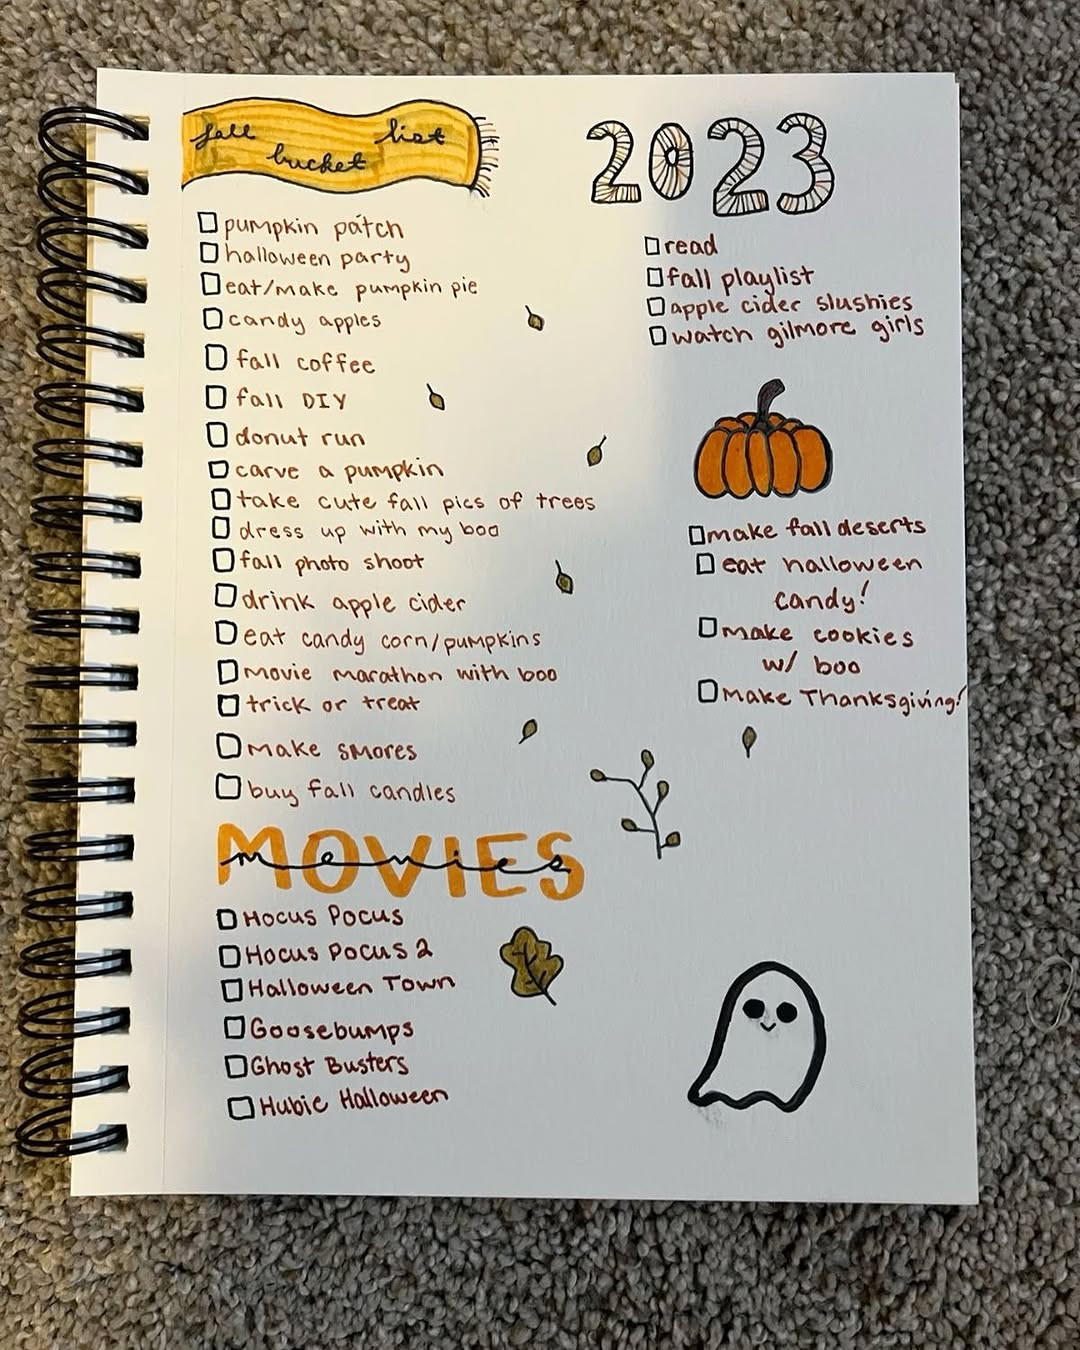 fall bucket list
2023
pumpkin patch
halloween party
eat/make pumpkin pie
candy apples
fall coffee
fall DIY
donut run
carve a pumpkin
take cute fall pics of trees
dress up with my boo
fall photo shoot
drink apple cider
eat candy corn/pumpkins
movie marathon with boo
trick or treat
make smores
buy fall candles
read
fall playlist
apple cider slushies
watch gilmore girls
make fall deserts
eat halloween
candy!
make cookies
w/ boo
make Thanksgiving!
MOVIES
movies
Hocus Pocus
Hocus Pocus 2
Halloween Town
Goosebumps
Ghost Busters
Hubie Halloween